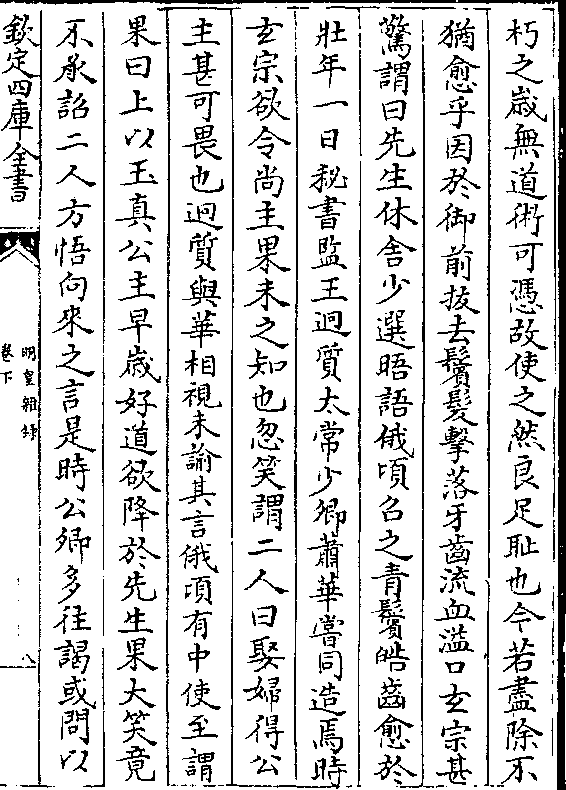 朽之歲無道術可憑故使之然良足耻也今若盡除不
猶愈乎因於御前拔去鬢髮擊落牙齒流血溢口玄宗甚
驚謂曰先生休舍少選晤語俄頃召之青鬢皓齒愈於
壯年一日秘書監王迥質太常少卿蕭華嘗同造焉時
玄宗欲令尚主果未之知也忽笑謂二人曰娶婦得公
主甚可畏也迥質與華相視未諭其言俄頃有中使至謂
果曰上以玉真公主早歲好道欲降於先生果大笑竟
不承詔二人方悟向來之言是時公卿多往謁或問以
欽定四庫全書
明皇雜錄
卷下
八